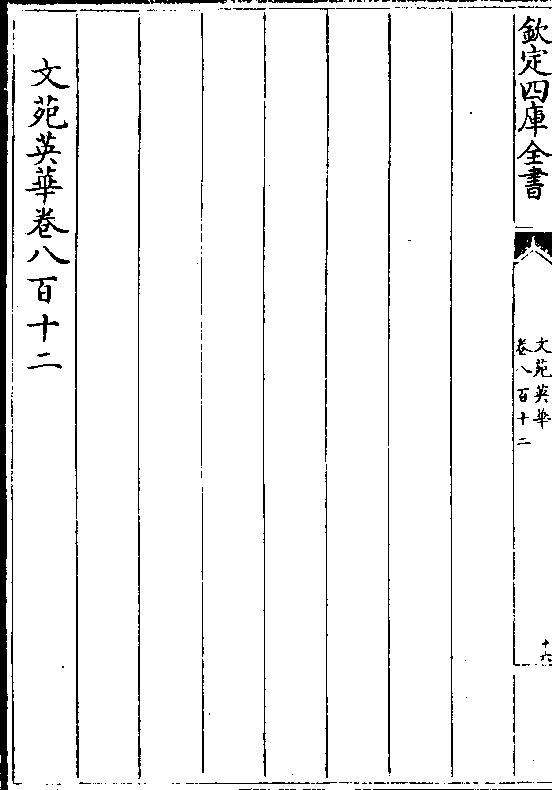 欽定四庫全書
文苑英華
卷八百十二
十六
文苑英華卷八百十二